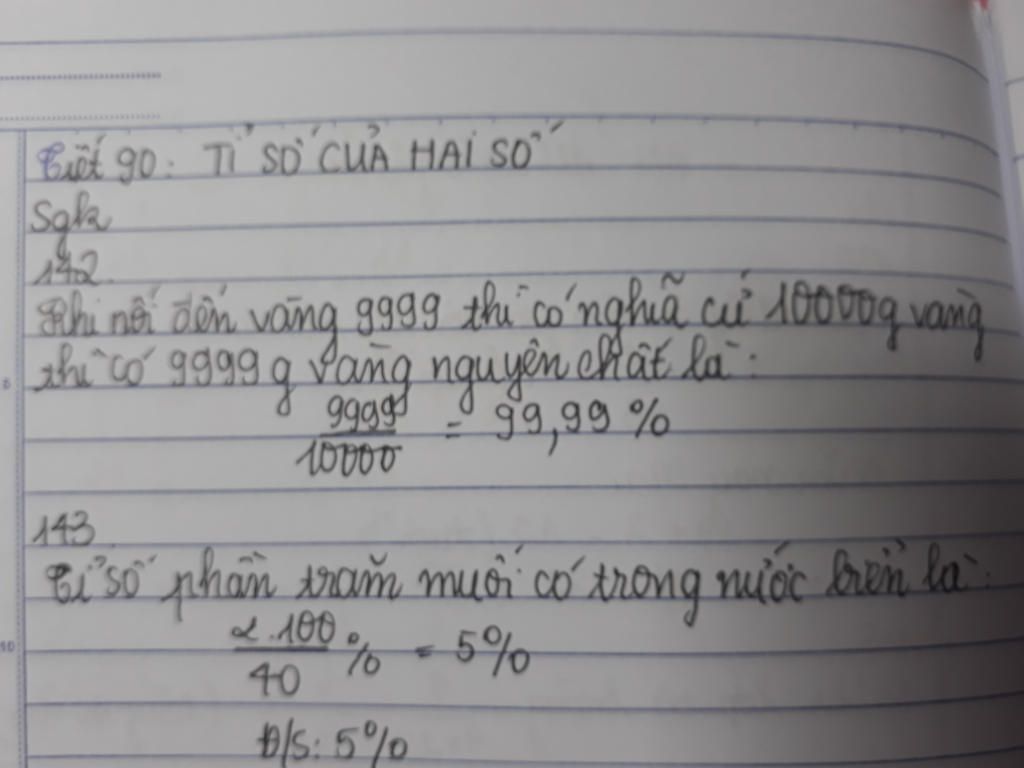 Tiết 90: TỈ SỐ CỦA HAI SỐ
Sgk
142.
Khi nói đến vàng 9999 thì có nghĩa cứ 10000g vàng
thì có 9999 g vàng nguyên chất là:
9999/10000 = 99,99 %
143
Tỉ số phần trăm muối có trong nước biển là:
2.100/40 % = 5%
Đ/S: 5%